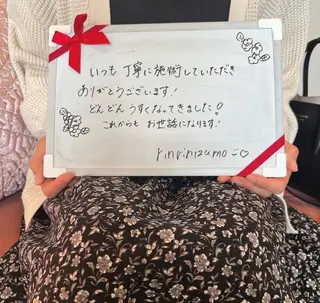 いつも丁寧に施術していただき
ありがとうございます!
どんどんうすくなってきました!
これからもお世話になります!
rinrinizumo